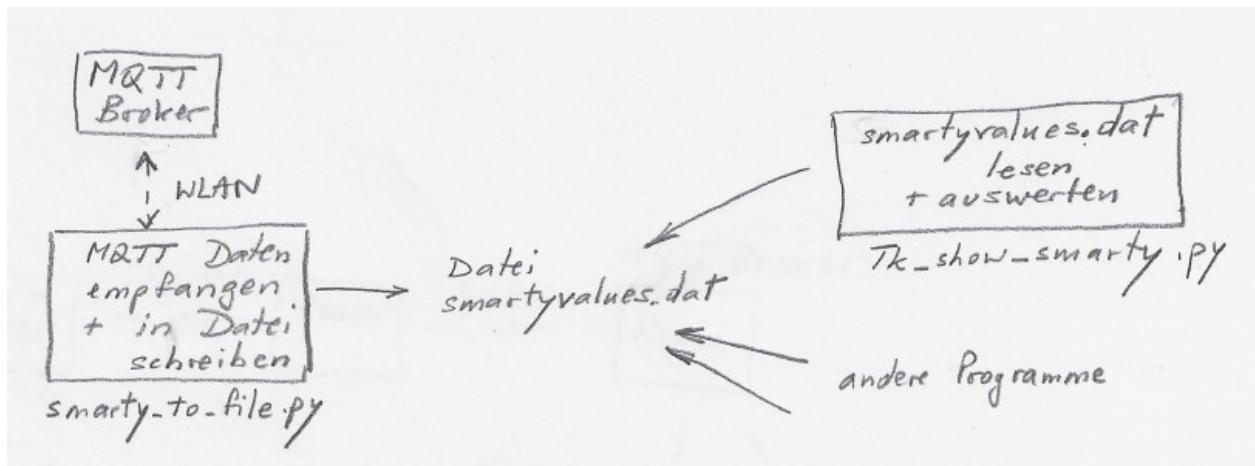 MQTT
Broker
WLAN
MQTT Daten
empfangen
+ in Datei
schreiben
smarty_to_file.py
Datei
smartyvalues.dat
smartyvalues.dat
lesen
+ auswerten
Tk_show_smarty.py
andere Programme